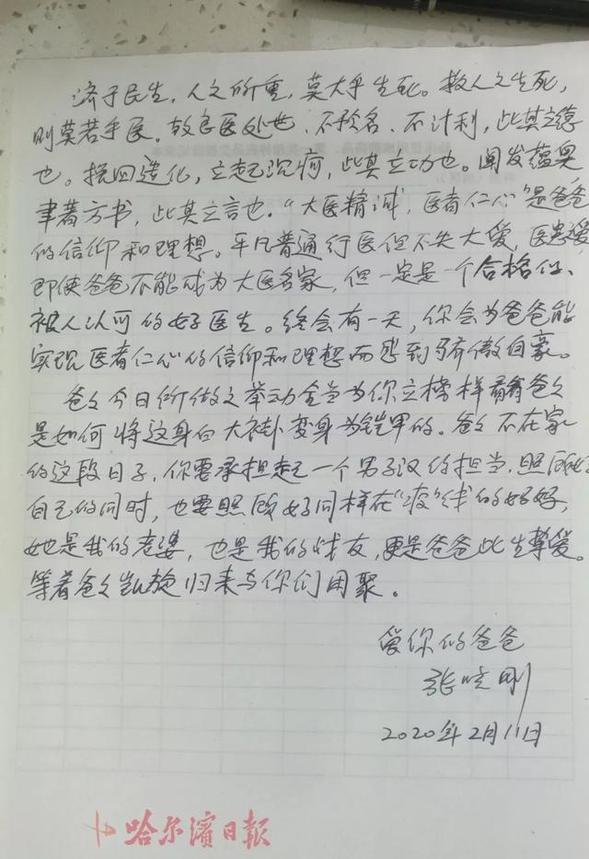 济于民生，人之所重，莫大乎生死。救人之生死，
则莫若乎医。故良医处世，不矜名，不计利，此其立德
也。挽回造化，立起沉疴，此其立功也。阐发蕴奥
聿著方书，此其立言也。“大医精诚，医者仁心”是爸爸
的信仰和理想。平凡普通行医但不失大爱，医患爱
即使爸爸不能成为大医名家，但一定是一个合格但、
被人认可的好医生。终会有一天，你会为爸爸能
实现医者仁心的信仰和理想而感到骄傲自豪。
爸爸今日所做之举动全当为你立榜样看看爸爸
是如何将这身白大褂变身为铠甲的。爸爸不在家
的这段日子，你要承担起一个男子汉的担当，照顾好
自己的同时，也要照顾好同样在“疫”线的妈妈，
她是我的老婆，也是我的战友，更是爸爸此生挚爱。
等着爸爸凯旋归来与你们团聚。
爱你的爸爸
张晓刚
2020年2月11日
哈尔滨日报